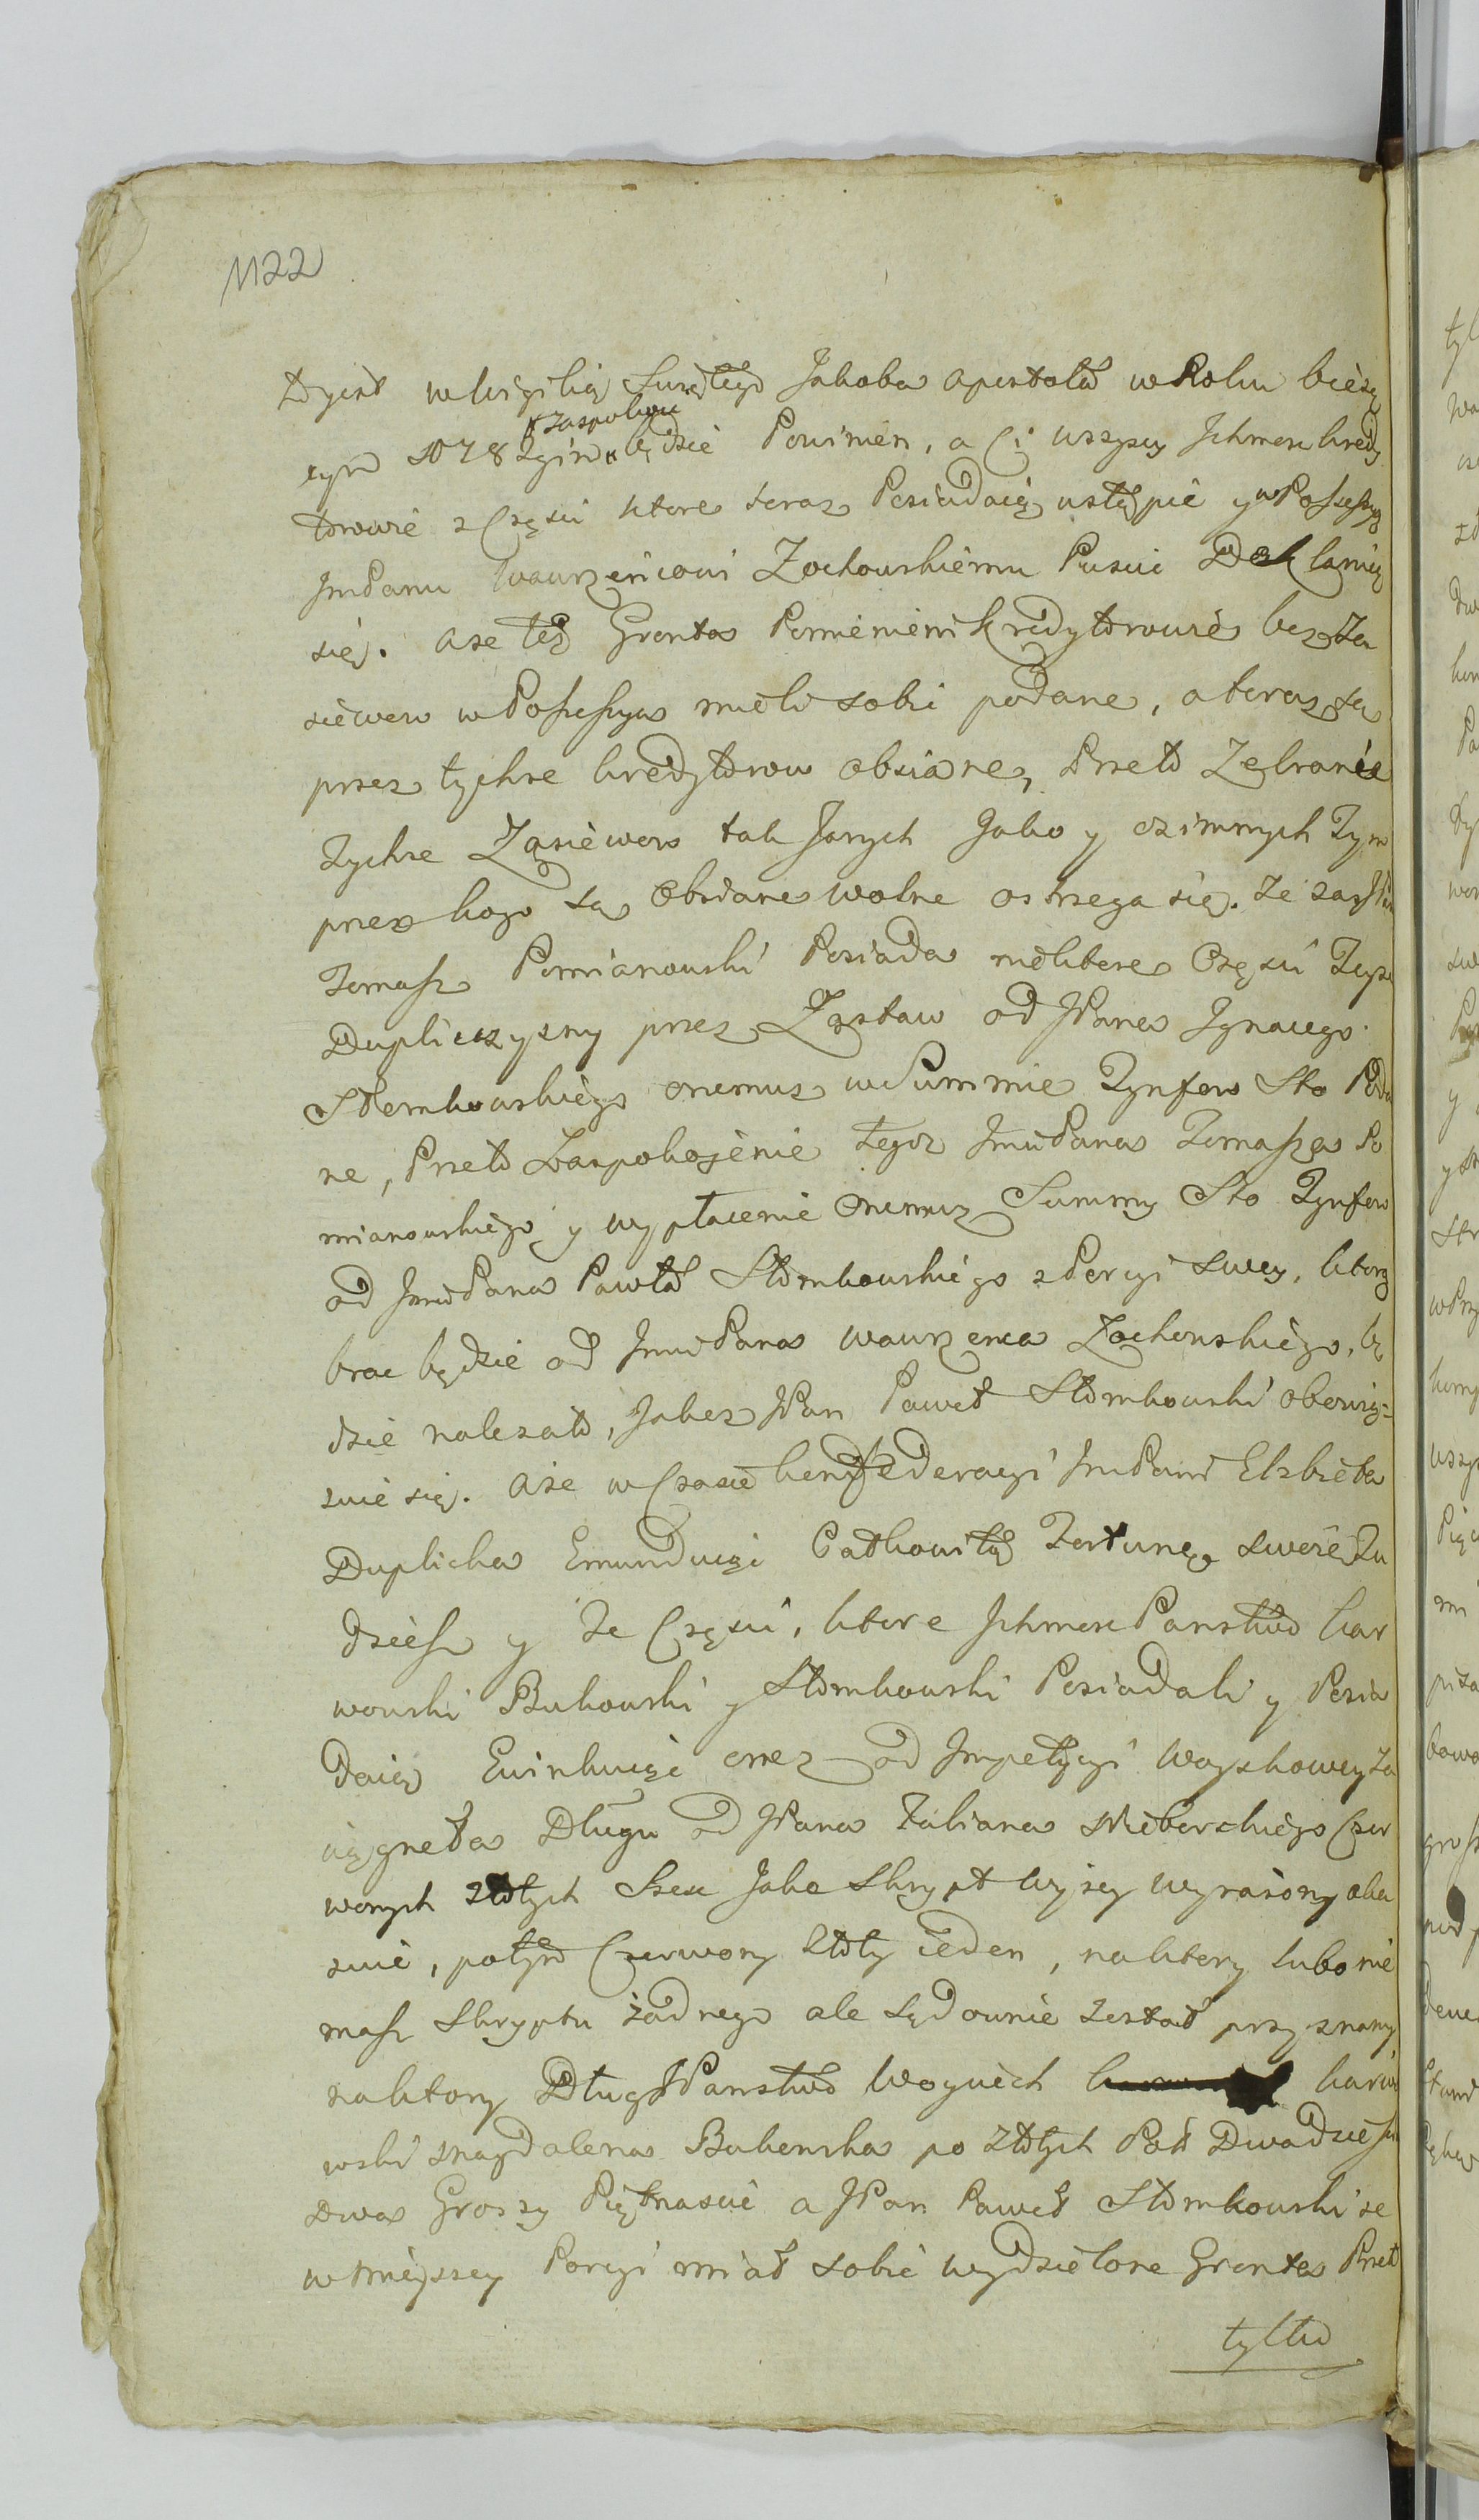 1122
to jest w Wigilią Swiętego Jakoba Apostoła w Roku bieżą
zaspokoić
cym 1782gim będzie Powinien, a Ci wszyscy Ichmsc kredy
torowie z Części ktore teraz Posiadaią ustąpić y w Possessyą
Jmć Panu Wawrzeńcowi Zochowskiemu Puscić Deklaruią
się. A że też Gronta Pomienieni kredytorowie bez Za
siewow w Possessyą mieli sobie podane, a teraz są
przez tychże kredytorow obsiane, Przeto Zebranie
Tychże Zasiewow tak Jarych Jako y ozimnych Tym
przez kogo są Obsiane wolne ostrzega się. Ze zas JPan
Tomasz Pomianowski Posiada niektore Części Teyże
Duplicczyzny przez Zastaw od JPana Ignacego
Słomkowskiego onemuz w Summie Tynfow Sto Poda
ne, Przeto Zaspokojenie tegoz Jmć Pana Tomasza Po
mianowskiego y wypłacenie Onemuz Summy Sto Tynfow
od Jmć Pana Pawła Słomkowskiego z Porcyi swey, ktorą
brac będzie od Jmć Pana Wawrzenca Zochowskiego, bę
dzie nalezało, Jakoz JPan Paweł Słomkowski obowią=
zuie się. A że w Czasie konfederacyi Jmć Pani Elzbieta
Duplicka Emunduiąc Całkowitą Fortunę swoię Tu
dziesz y te Części, ktore Ichmsc Panstwo kar
wowski Bukowski y Słomkowski Posiadali y Posia
daią Ewinkuiąc onez od Impetycyi Woyskowey za
ciągneła Długu od JPana Fabiana Czer
wonych złotych Szesc Jako Skrypt wyzey wyrażony oka
zuie, potym Czerwony Złoty ieden, na ktory lubo nie
masz Skryptu żadnego ale sądownie został przyznany
na ktory Dług JPanstwo Woyciech karwo
wski Magdalena Bukowska po Złotych Pol Dwadziescia
Dwa Groszy Piętnascie a JPan Paweł Słomkowski że
w mnieyszey Porcyi miał sobie wydzielone Gronta Przeto
tylko